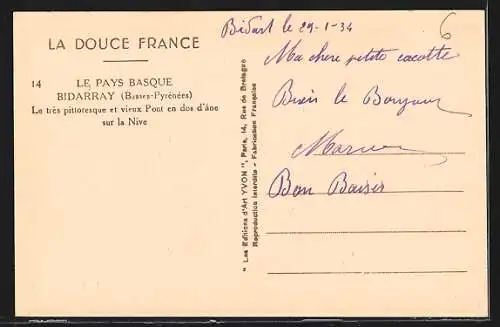 LA DOUCE FRANCE
14 LE PAYS BASQUE
BIDARRAY (Basses-Pyrénées)
Le très pittoresque et vieux Pont en dos d'âne
sur la Nive
" Les Editions d'Art YVON ", Paris, 14, Rue de Bretagne
Reproduction Interdite - Fabrication Française
Bidart le 29-1-34
6
Ma chere petite cocotte
le Bonjour
Bon Baiser